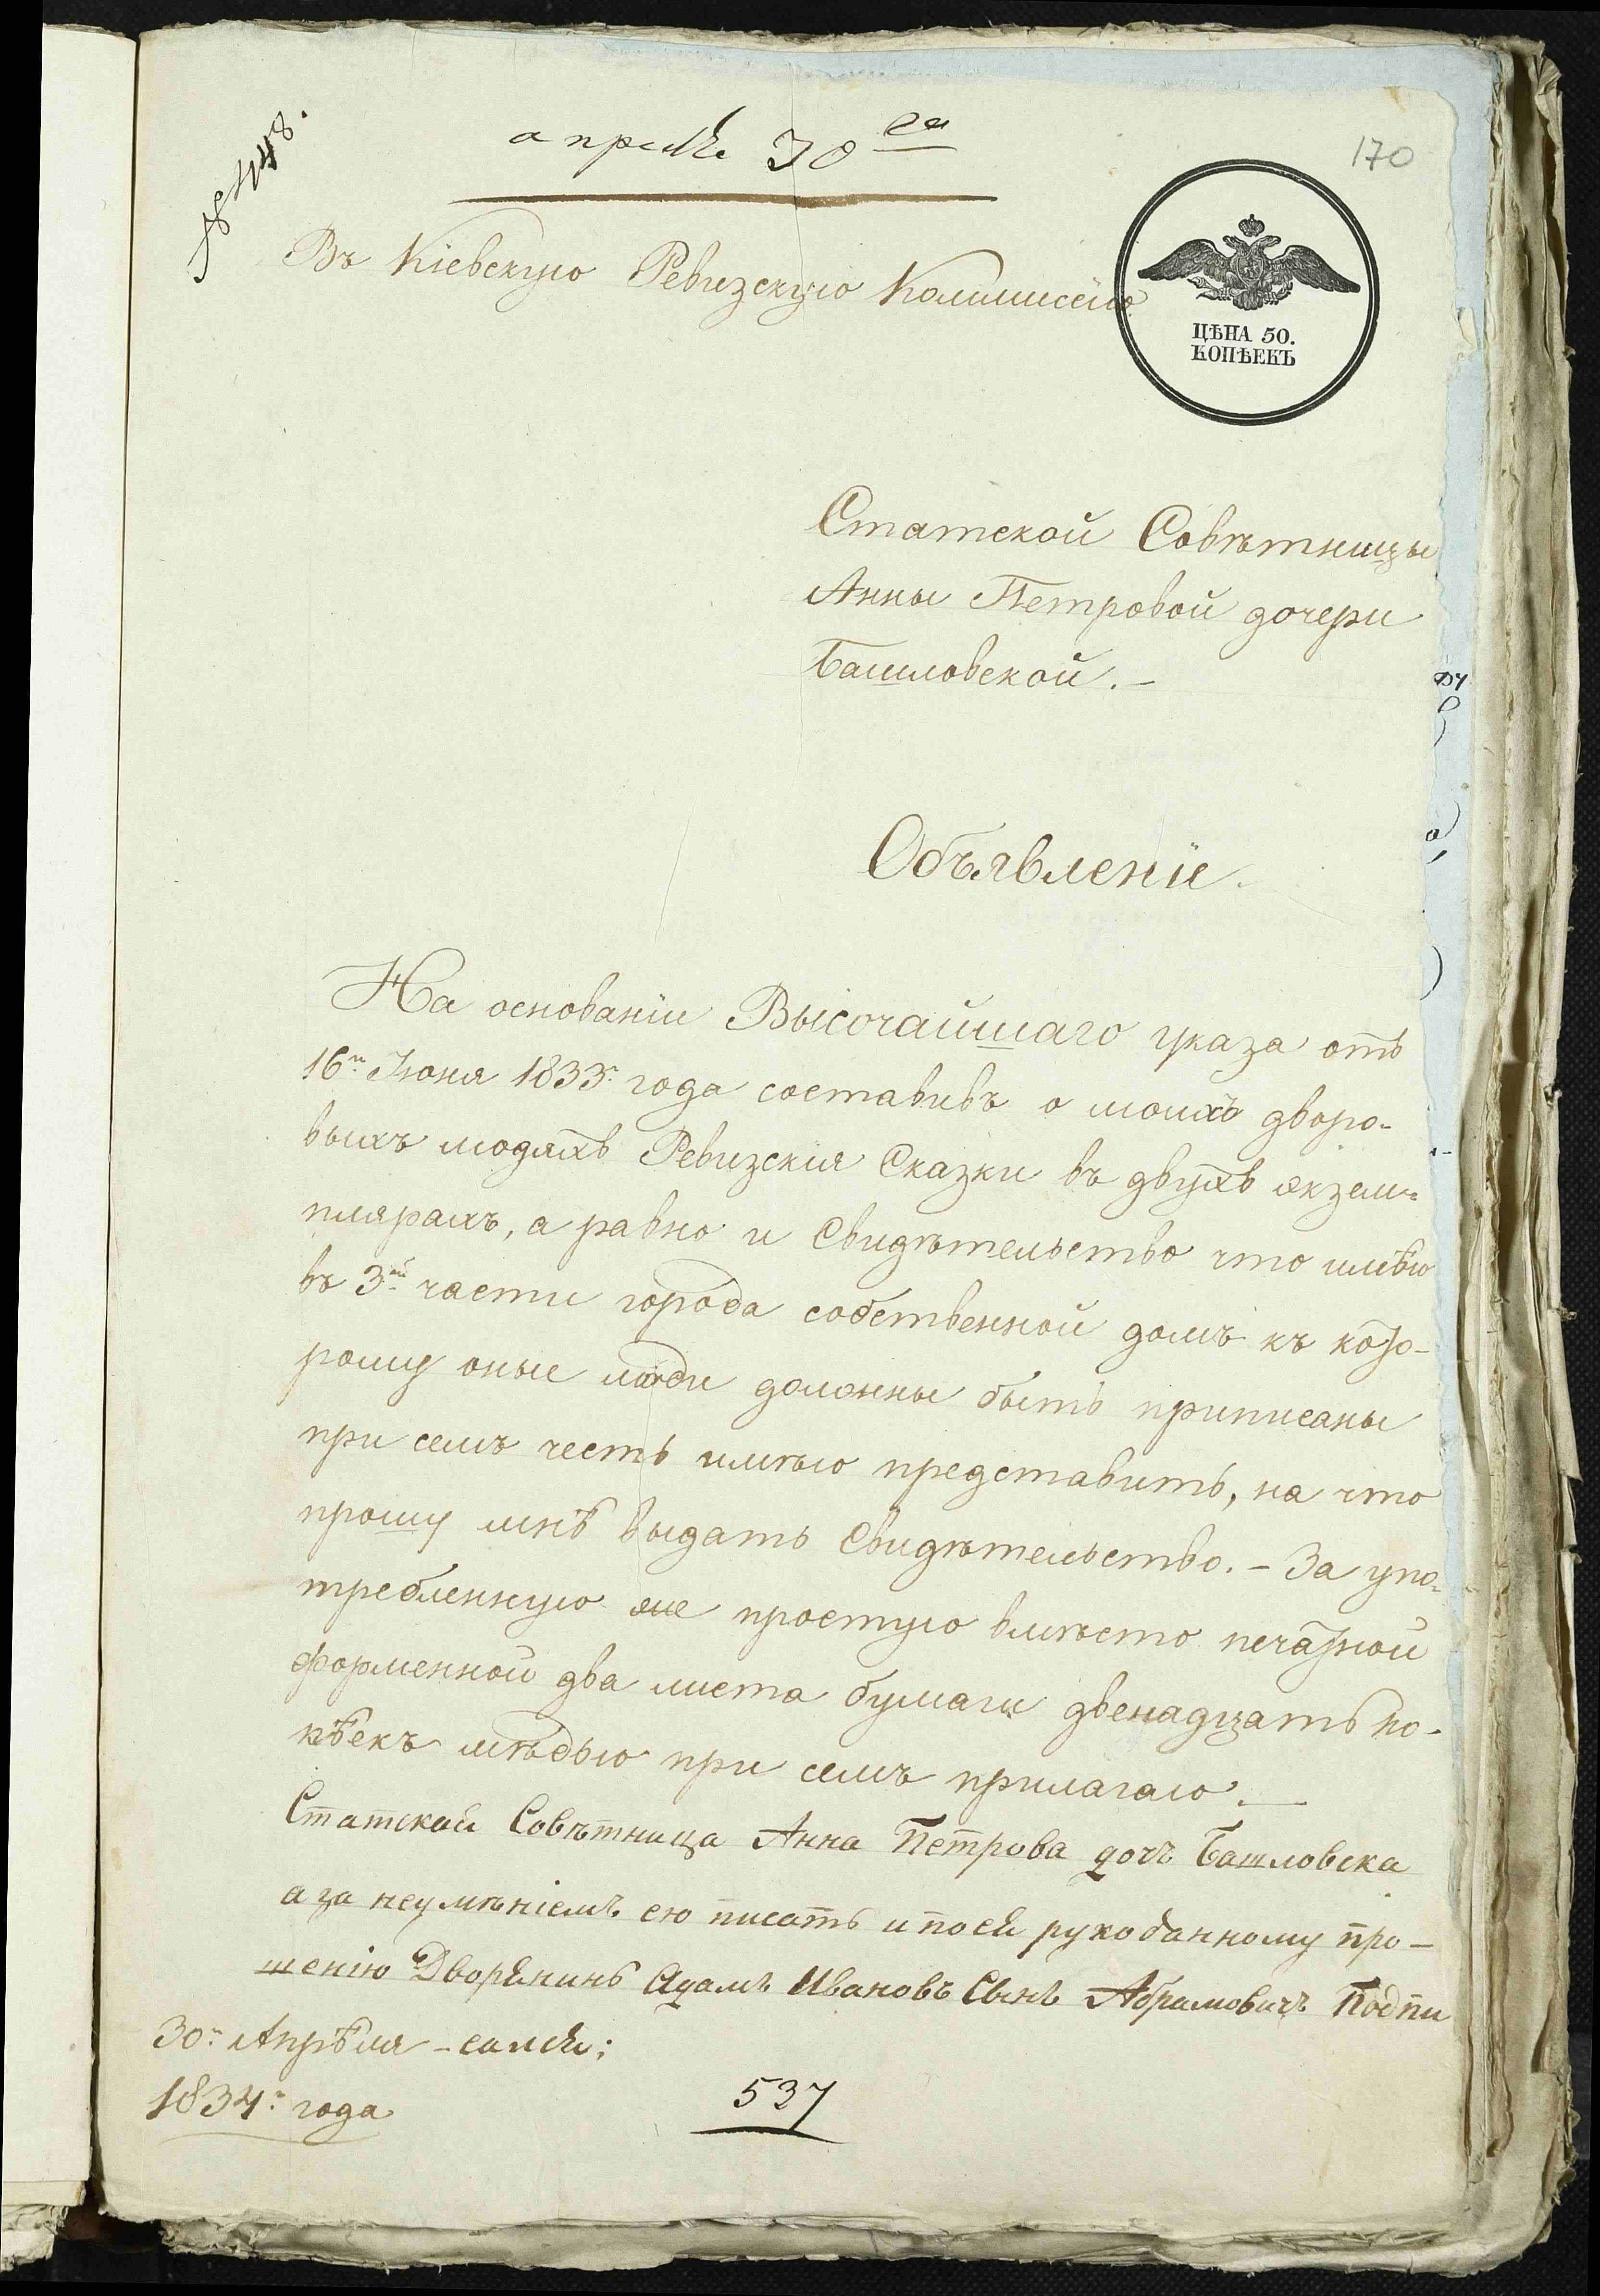 № 1448.
апреля 30го
170
Въ Кіевскую Ревизскую Коммисію
ЦѢНА 50.
КОПѢЕКЪ
Статской Совѣтницы
Анны Петровой дочери
Башловской. –
Объявленіе.
На основаніи Высочайшаго указа отъ
16го Іюня 1833го года составивъ о моихъ дворо-
выхъ людяхъ Ревизскія Сказки въ двухъ экзем-
плярахъ, а равно и Свидѣтельство что имѣю
въ 3ей части города собственной домъ къ кото-
рому оные люди должны быть приписаны
при семъ честь имѣю представить, на что
прошу мнѣ выдать Свидѣтельство. – За упо-
требленную же простую вмѣсто печатной
форменной два листа бумаги двенадцать ко-
пѣекъ мѣдью при семъ прилагаю. –
Статская Совѣтница Анна Петрова дочъ Башловска
а за неумѣніемъ ею писать и по ея рукоданному про-
шенію Дворянинъ Адамъ Ивановъ Сынъ Абрамовичъ Подпи
30го Апрѣля - сался;
1834го года
537